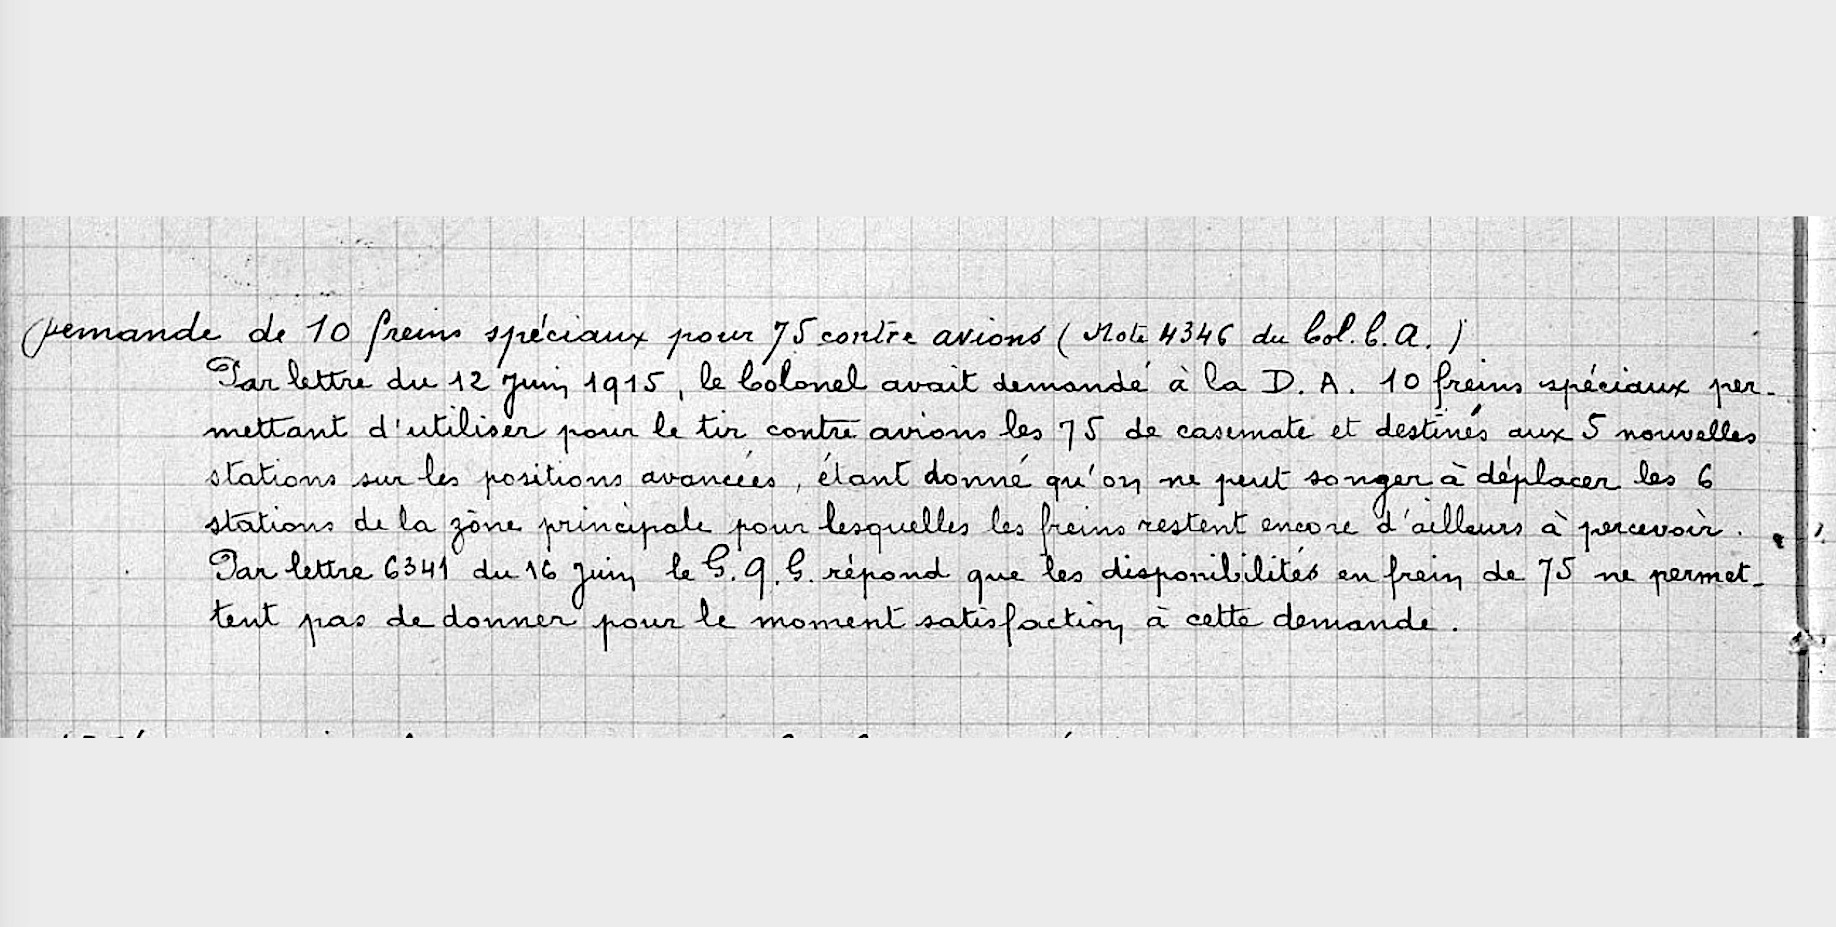 Demande de 10 freins spéciaux pour 75 contre avions (Note 4346 du Col. C. A.)
Par lettre du 12 Juin 1915, le Colonel avait demandé à la D. A. 10 freins spéciaux per-
mettant d'utiliser pour le tir contre avions les 75 de casemate et destinés aux 5 nouvelles
stations sur les positions avancées, étant donné qu'on ne peut songer à déplacer les 6
stations de la zône principale pour lesquelles les freins restent encore d'ailleurs à percevoir.
Par lettre 6341 du 16 Juin le G. Q. G. répond que les disponibilités en frein de 75 ne permet-
tent pas de donner pour le moment satisfaction à cette demande.